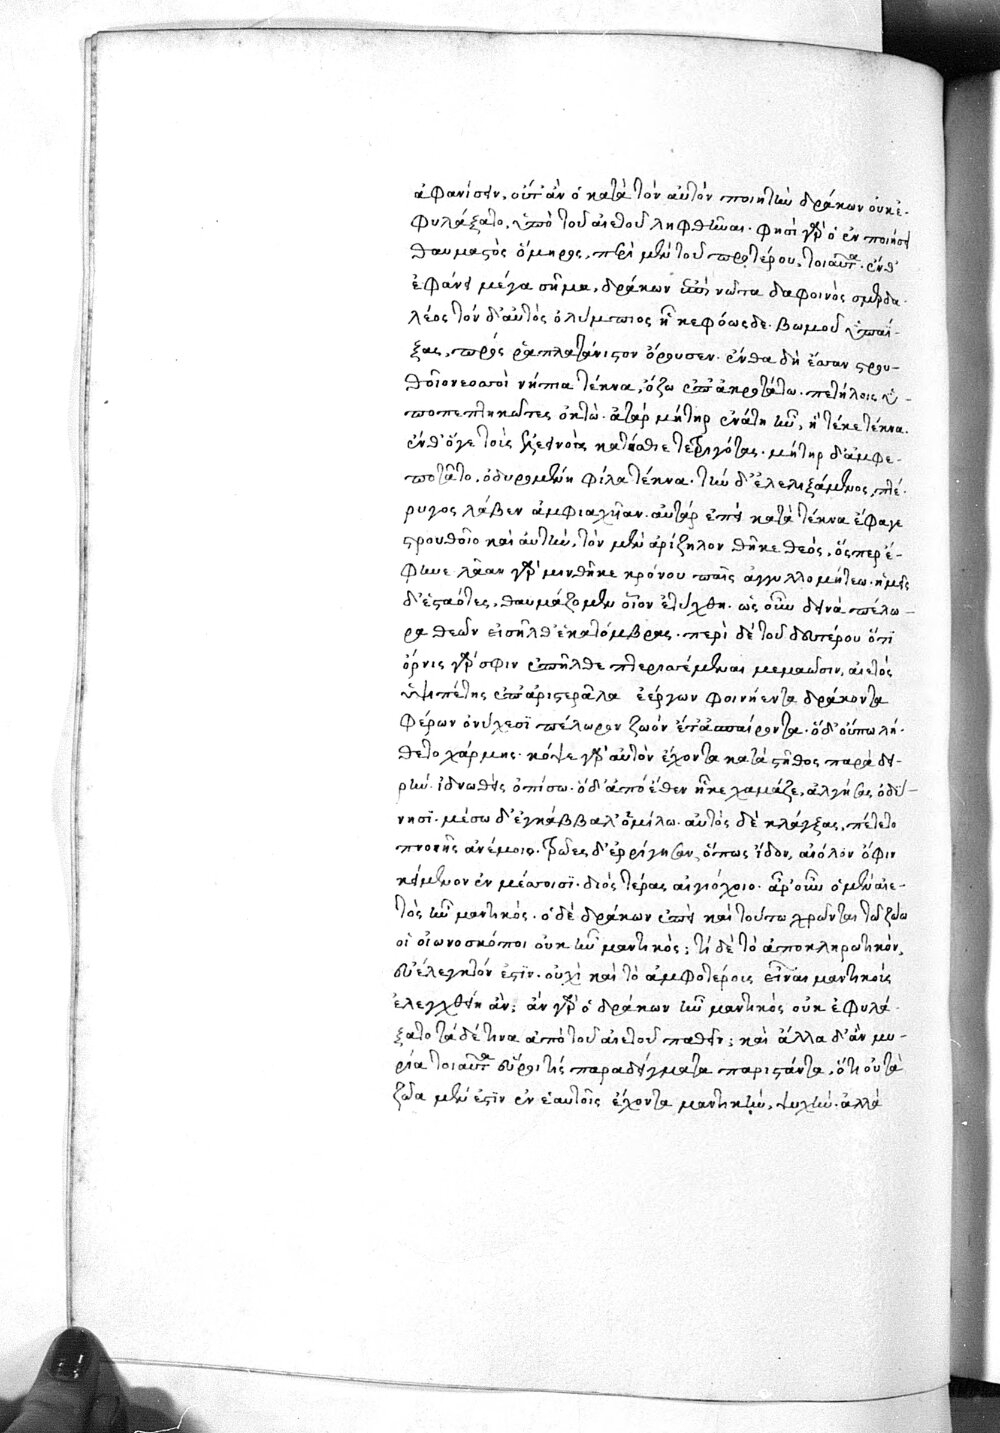 ἀφανίσειν, οὔτ' ἂν ὁ κατὰ τὸν αὐτὸν ποιητὴν δράκων οὐκ ἐ-
φυλάξατο, ὑπὸ τοῦ αἰετοῦ ληφθῆναι. φησὶ γὰρ ὁ ἐν ποιήσει
θαυμαστὸς ὅμηρος, περὶ μὲν τοῦ προτέρου, τοιαῦτα. ἔνθ'
ἐφάνει μέγα σῆμα, δράκων ἐπὶ νῶτα δαφοινὸς σμερδα-
λέος τόν δ' αὐτὸς ὀλύμπιος ἧκε φόωσδε. βωμοῦ ὑπαΐ-
ξας, πρός ῥα πλατάνιστον ὄρουσεν. ἔνθα δὴ ἔσαν στρου-
θοῖο νεοσσοὶ νήπια τέκνα, ὄζω ἐπ' ἀκροτάτω. πετήλοις ὑ-
ποπεπτηκῶτες ὀκτὼ. ἀτὰρ μήτηρ ἐνάτη ἦν, ἣ τέκε τέκνα.
ἔνθ' ὅγε τοὺς ἐλεεινοὺς κατήσθιε τετριγότας. μήτηρ δ' ἀμφε-
ποτᾶτο, ὀδυρομένη φίλα τέκνα. τὴν δ' ἐλελιξάμενος, πτέ-
ρυγος λάβεν ἀμφιαχῆαν. αὐτὰρ ἐπεὶ κατὰ τέκνα ἔφαγε
στρουθοῖο καὶ αὐτὴν, τὸν μὲν ἀρίζηλον θῆκε θεὸς, ὅσπερ ἔ-
φηνε λᾶαν γάρ μιν θῆκε κρόνου παῖς ἀγκυλομήτεω. ἡμεῖς
δ' ἑσταότες, θαυμάζομεν οἷον ἐτύχθη. ὡς οὖν δεινὰ πέλω-
ρα θεῶν εἰσῆλθ' ἑκατόμβας. περὶ δὲ τοῦ δευτέρου ὅτι
ὄρνις γάρ σφιν ἐπῆλθε περησέμεναι μεμαῶσιν, αἰετὸς
ὑψιπέτης ἐπ' ἀριστερὰ λα ἐέργων φοινήεντα δράκοντα
φέρων ὀνύχεσϊ πέλωρον ζωὸν ἔτ' ἀσπαίροντα. ὁ δ' οὔπω λή-
θετο χάρμης. κόψε γὰρ αὐτὸν ἔχοντα κατὰ στῆθος παρὰ δει-
ρὴν. ἰδνωθεὶς ὀπίσω. ὁ δ' ἀπό ἕθεν ἧκε χαμάζε, ἀλγήσας ὀδύ-
νησϊ. μέσω δ' ἐγκάββαλ' ὁμίλω. αὐτὸς δὲ κλάγξας, πέτετο
πνοιῆς ἀνέμοιο. τρῶες δ' ἐρρίγησαν, ὅπως ἴδον, αἰόλον ὄφιν
κείμενον ἐν μέσοισϊ. διὸς τέρας αἰγιόχοιο. ἆρ' οὖν ὁ μὲν αἰε-
τὸς ἦν μαντικός. ὁ δὲ δράκων ἐπεὶ καὶ τούτω χρῶνται τῶ ζώω
οἱ οἰωνοσκόποι οὐκ ἦν μαντικὸς; τί δὲ τὸ ἀποκληρωτικὸν,
εὐέλεγκτόν ἐστϊν. οὐχὶ καὶ τὸ ἀμφοτέροις εἶναι μαντικοῖς
ἐλεγχθείη ἂν; ἂν γὰρ ὁ δράκων ἦν μαντικὸς οὐκ ἐφυλά-
ξατο τάδέ τινα ἀπὸ τοῦ αἰετοῦ παθεῖν; καὶ ἄλλα δ' ἂν μυ-
ρία τοιαῦτα εὕροι τίς παραδείγματα παριστάντα, ὅτι οὐ τὰ
ζῶα μὲν ἐστϊν ἐν ἑαυτοῖς ἔχοντα μαντικὴν, ψυχὴν. ἀλλὰ